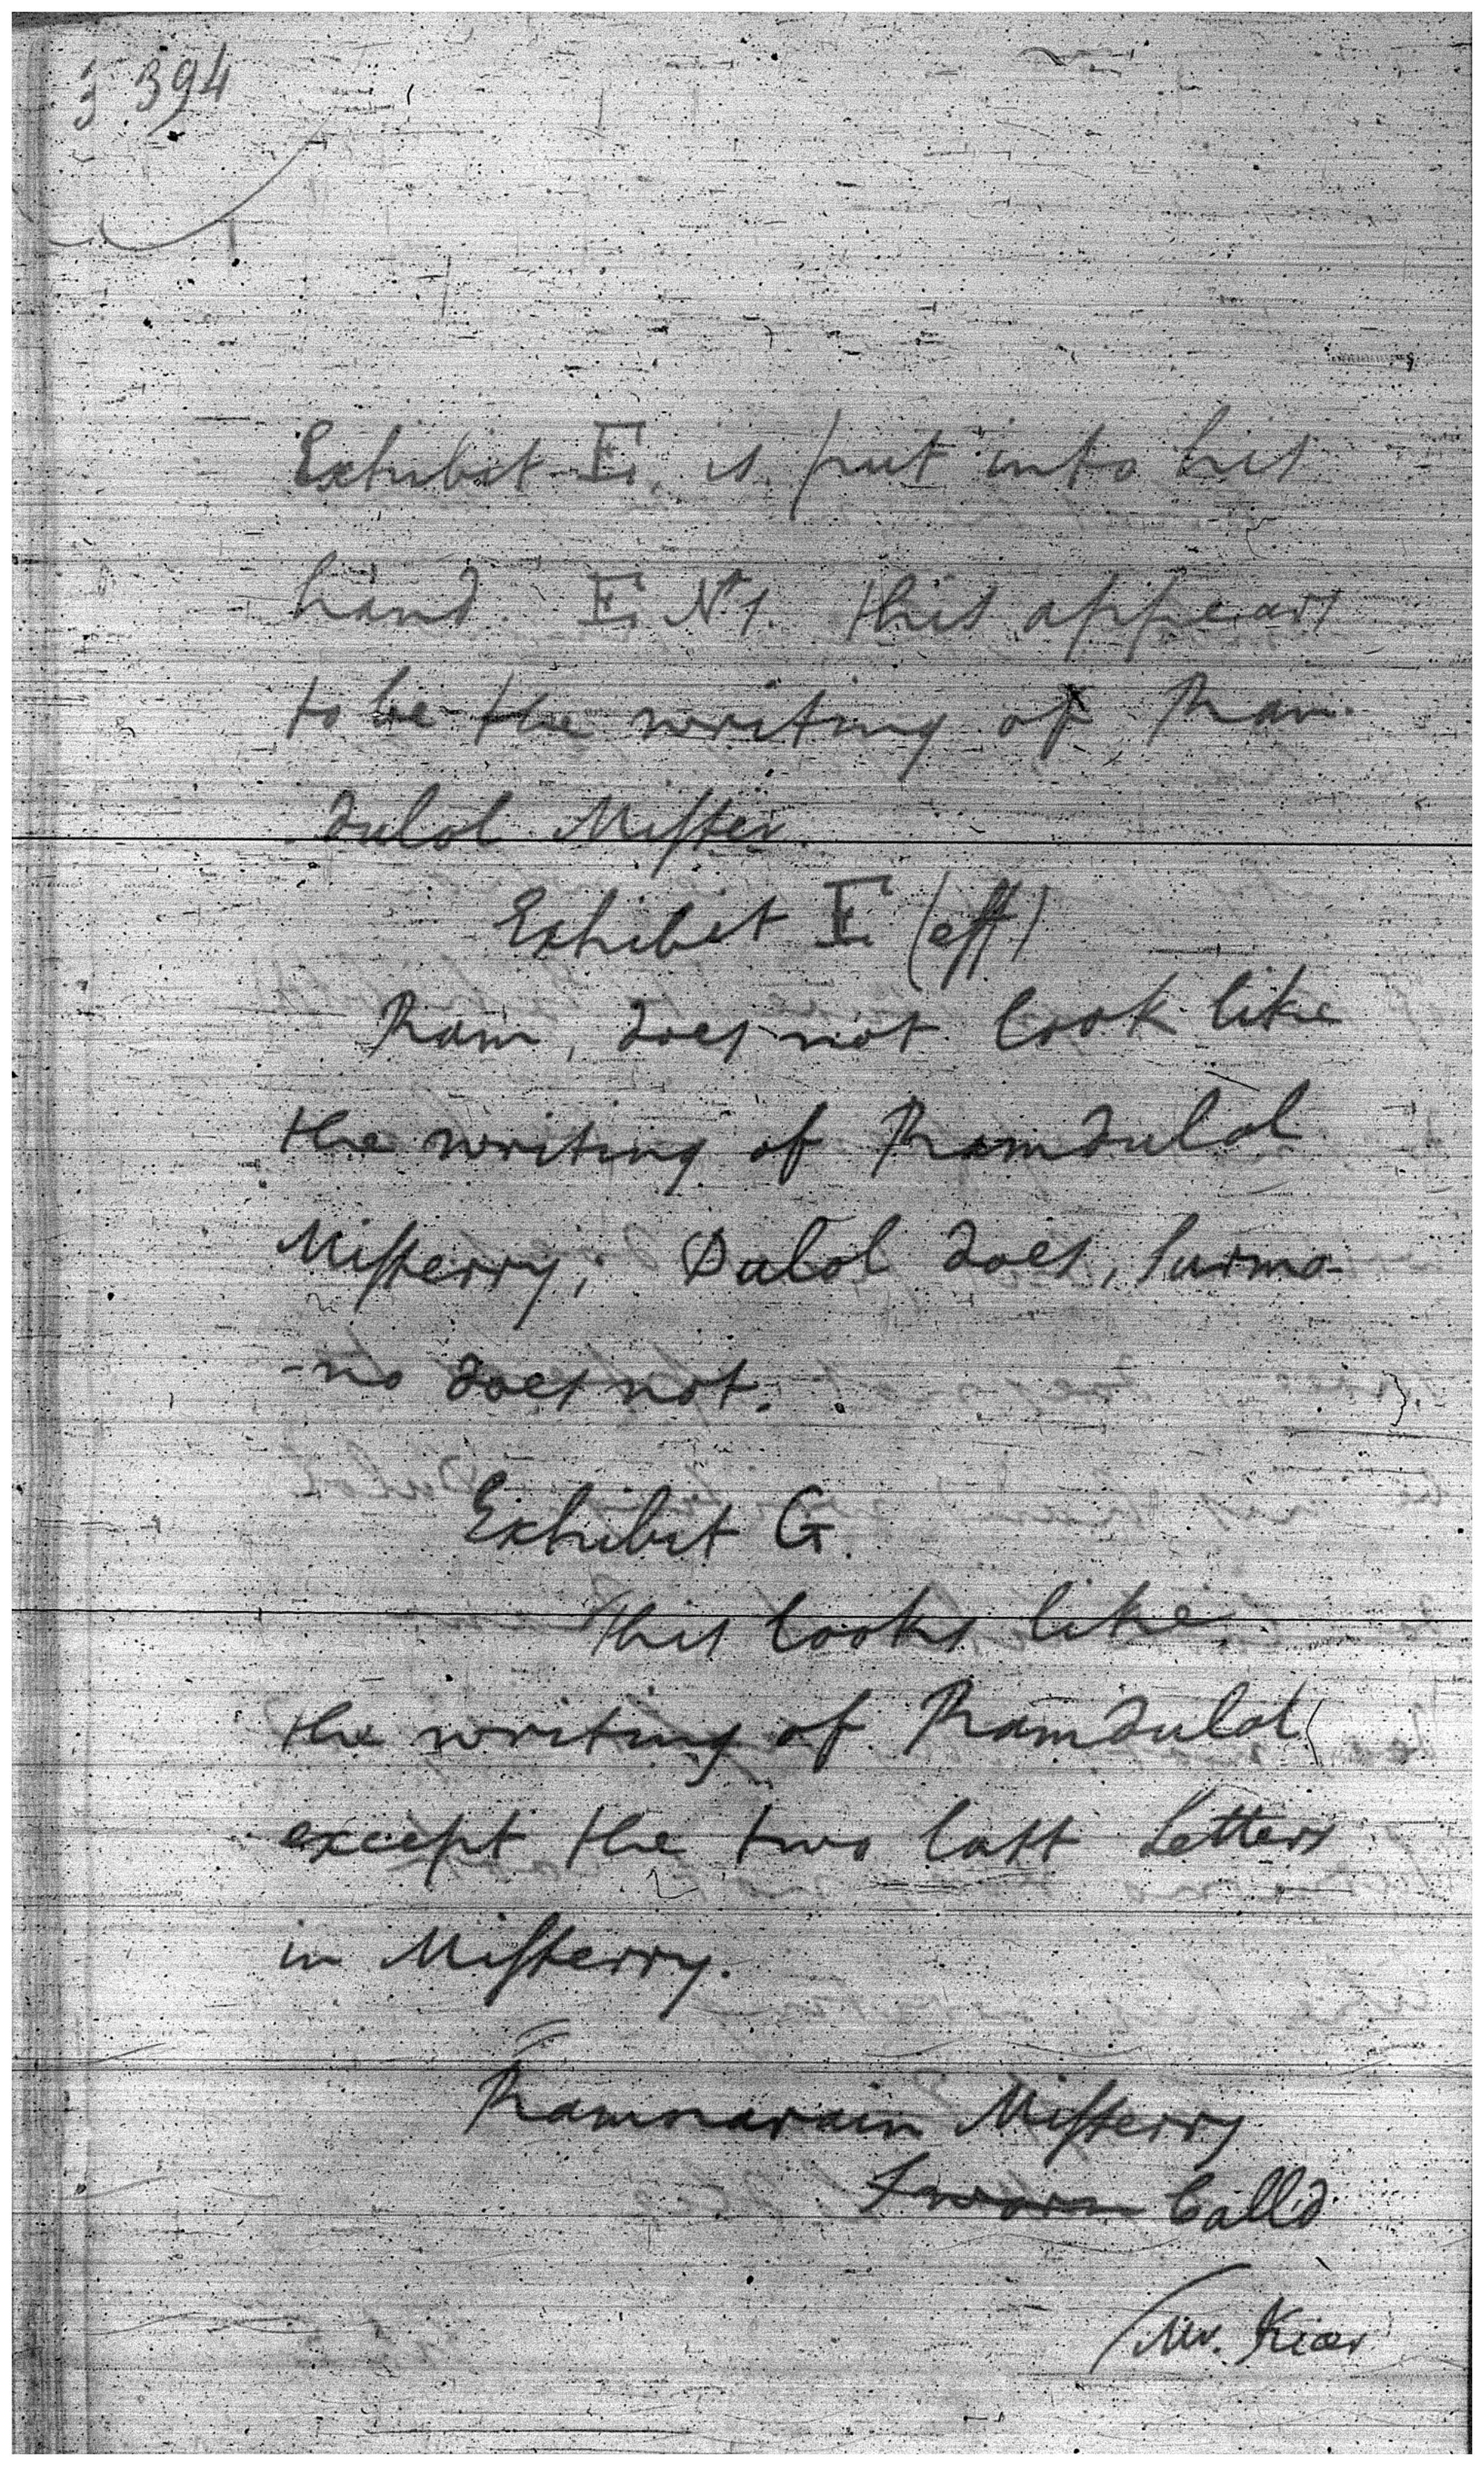 394
Exhibit E. is put into his
hand. E. No 1. this appears
to be the writing of Ram-
-dulol Mister.
Exhibit F (eff)
Ram, does not look like
the writing of Ramdulol
Misterry; Dulol does, Surmo-
-no does not.
Exhibit G.
This looks like
the writing of Ramdulol
except the two last Letters
in Misterry.
Ramnarain Misterry
Sworn Call'd
Mr.